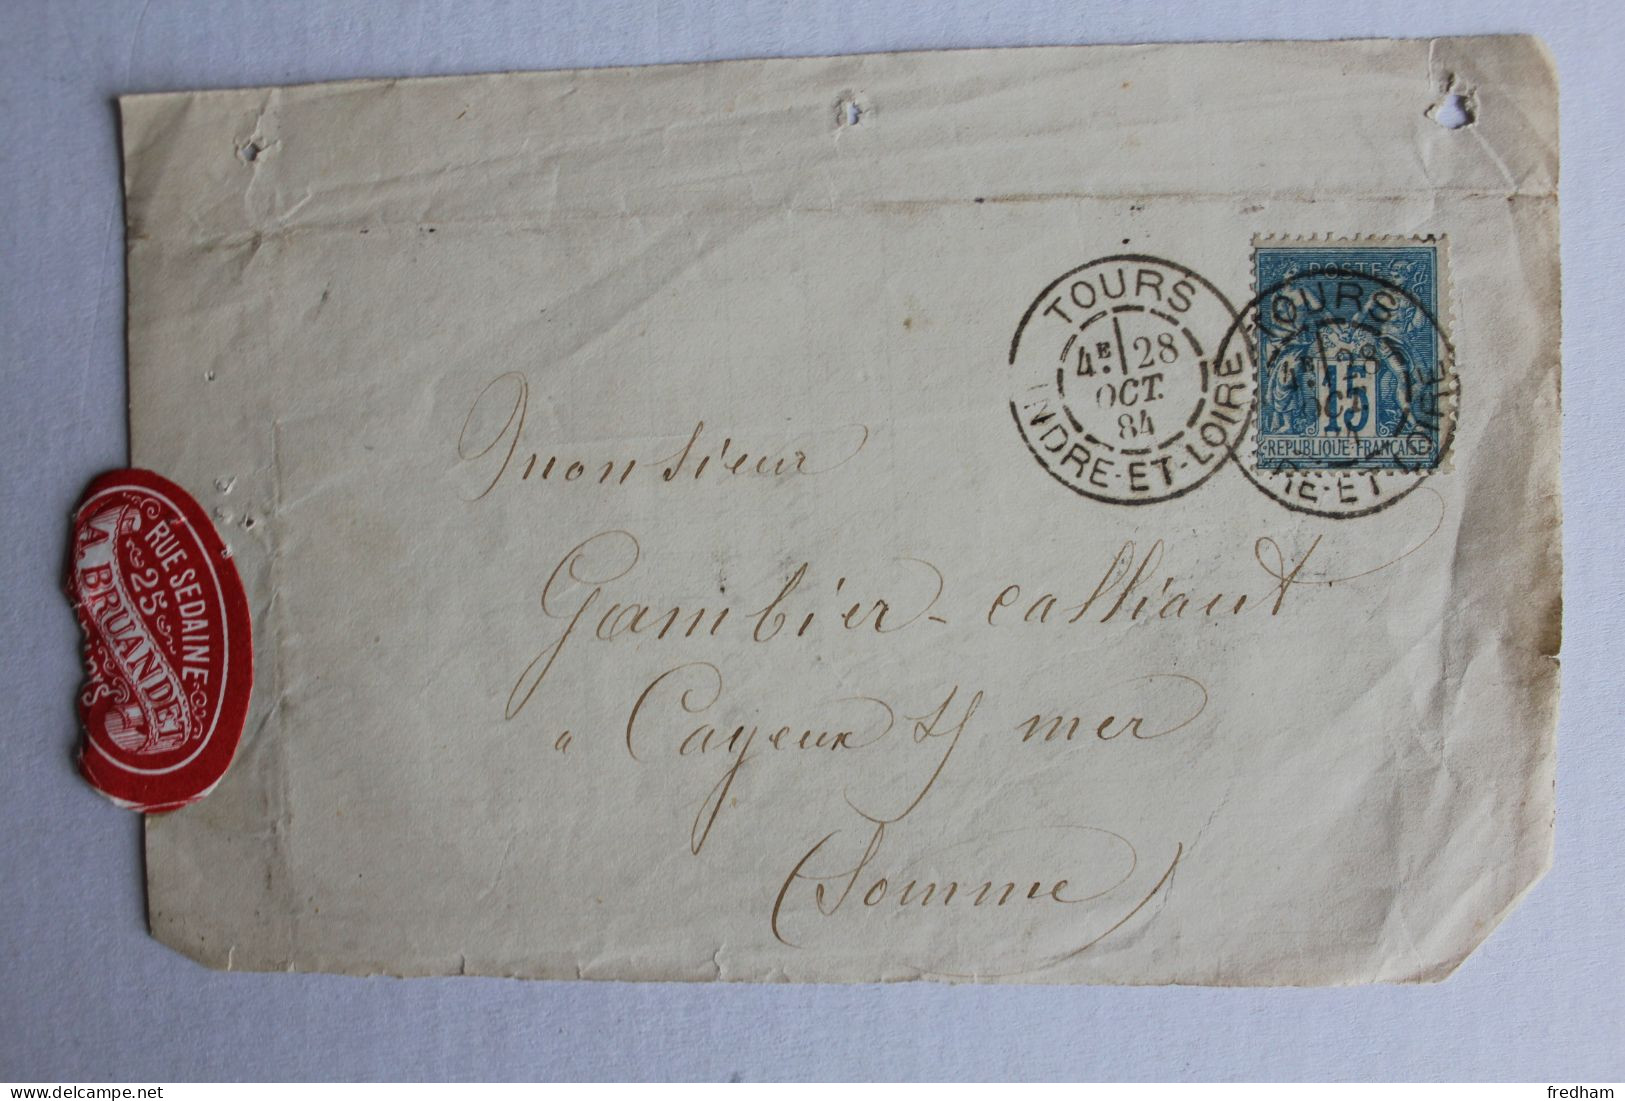 TOURS
4E 28
OCT.
84
INDRE-ET-LOIRE
POSTE
15
REPUBLIQUE FRANÇAISE
TOURS
4E 28
OCT
ET-LOIRE
Monsieur
Gambier-Calliaut
a Cayeux s/ mer
(Somme)
RUE SEDAINE
25
A. BRUANDET
delcampe.net
fredham